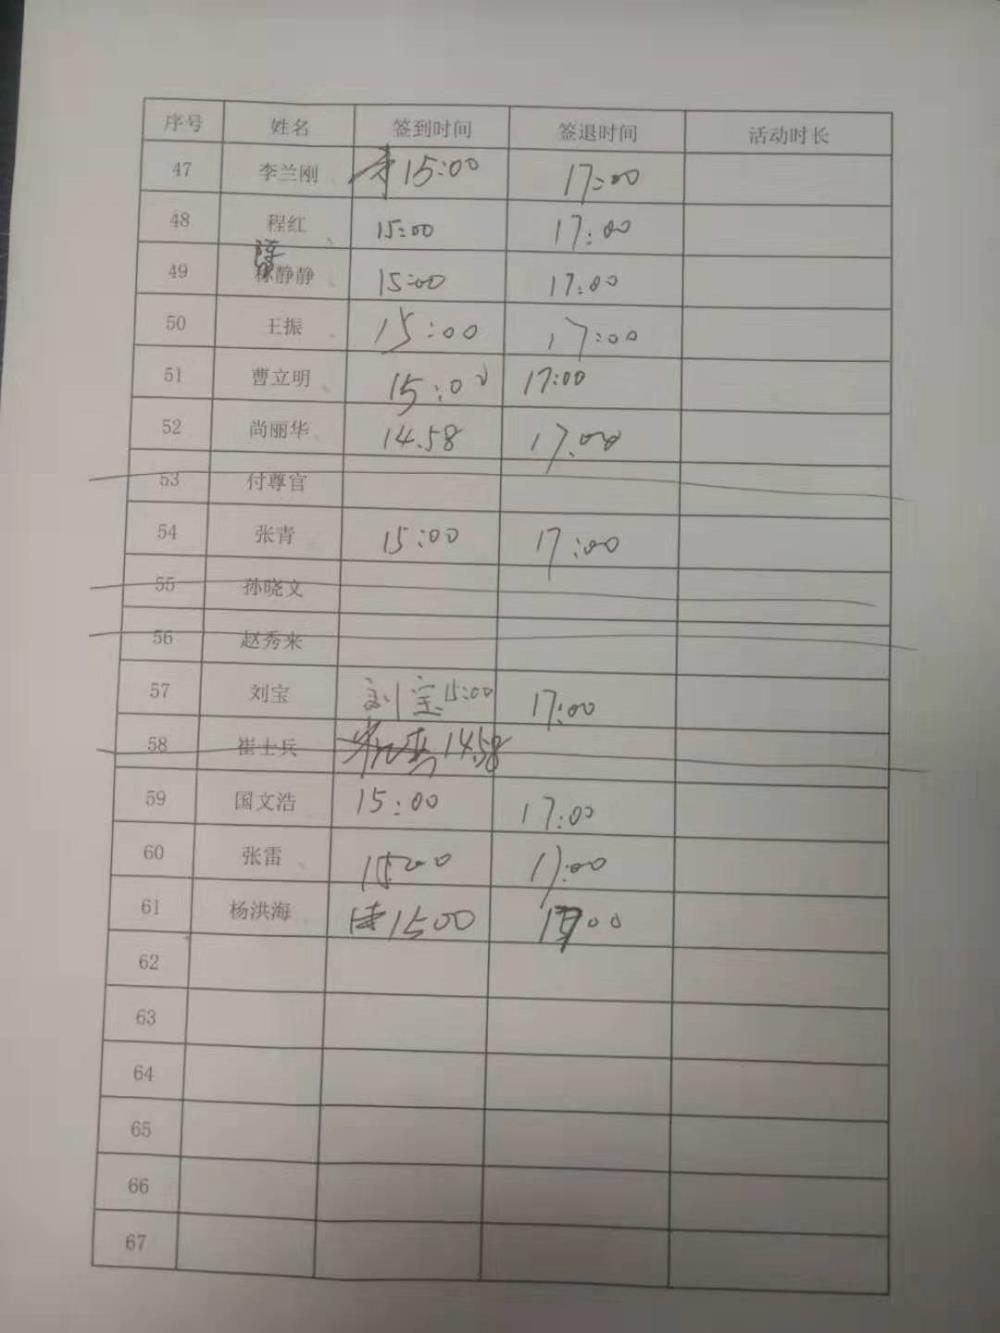 序号 姓名 签到时间 签退时间 活动时长
47 李兰刚 15:00 17:00
48 程红 15:00 17:00
陈
49 静静 15:00 17:00
50 王振 15:00 17:00
51 曹立明 15:00 17:00
52 尚丽华 14.58 17.00
53 付尊官
54 张青 15:00 17:00
55 孙晓文
56 赵秀来
57 刘宝 刘宝 15:00 17:00
58 崔士兵 14.58
59 国文浩 15:00 17:00
60 张雷 15:00 17:00
61 杨洪海 15:00 17:00
62
63
64
65
66
67